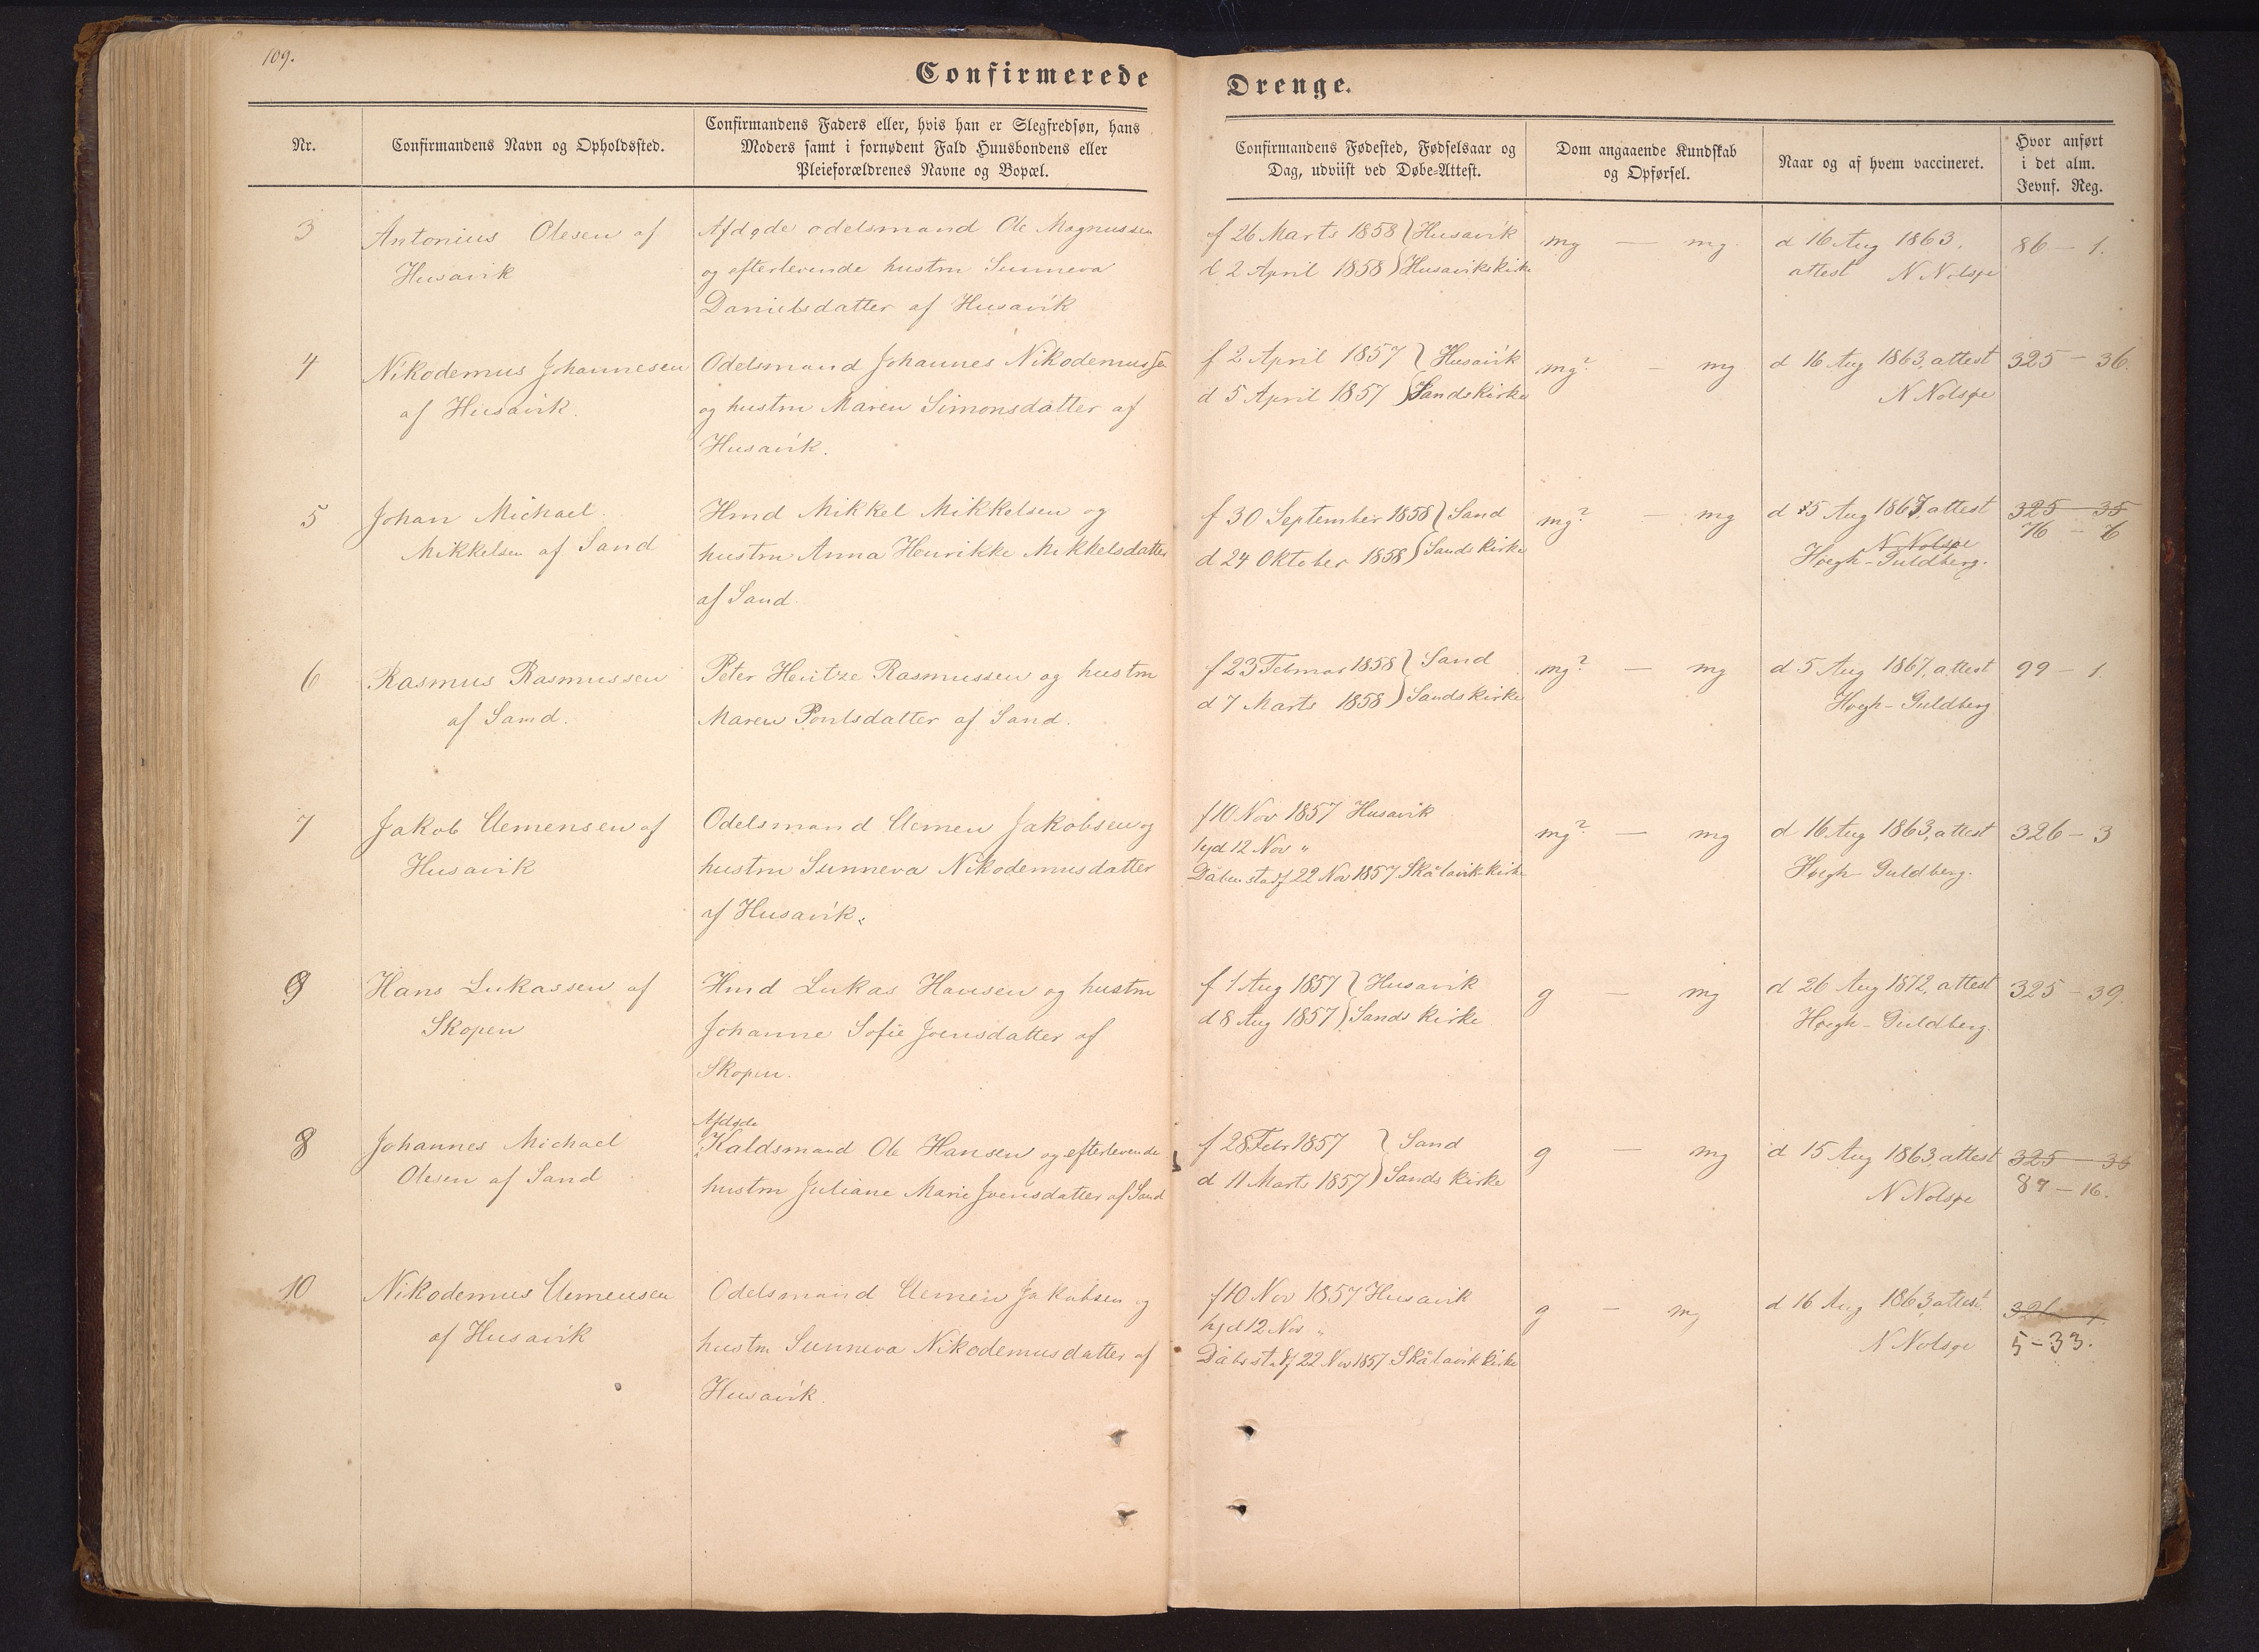 109.
Confirmerede Drenge.
Nr.
Confirmandens Navn og Opholdssted.
Confirmandens Faders eller, hvis han er Slegfredsøn, hans
Moders samt i fornødent Fald Huusbondens eller
Pleieforældrenes Navne og Bopæl.
Confirmandens Fødested, Fødselsaar og
Dag, udviist ved Døbe-Attest.
Dom angaaende Kundskab
og Opførsel.
Naar og af hvem vaccineret.
Hvor anført
i det alm.
Jevnf. Reg.
3
Antonius Olesen af
Husavik
Afdøde odelsmand Ole Magnussen
og efterlevende hustru Sunneva
Danielsdatter af Husavik
f 26 Marts 1858 Husavik
d 2 April 1858 Husavikskirke
mg — mg.
d 16 Aug 1863,
attest N Nolsøe
86 — 1.
4
Nikodemus Johannesen
af Husavik.
Odelsmand Johannes Nikodemussen
og hustru Maren Simonsdatter af
Husavik.
f 2 April 1857 Husavik
d 5 April 1857 Sandskirke
mg? — mg
d 16 Aug 1863, attest
N Nolsøe
325 — 36.
5
Johan Michael
Mikkelsen af Sand
Hmd Mikkel Mikkelsen og
hustru Anna Henrikke Mikkelsdatter
af Sand.
f 30 September 1858 Sand
d 24 Oktober 1858 Sandskirke
mg? — mg
d 5 Aug 1867, attest
N Nolsøe
Høegh-Guldberg.
325 — 35
76 — 6
6
Rasmus Rasmussen
af Sand.
Peter Hentze Rasmussen og hustru
Maren Poulsdatter af Sand.
f 23 Februar 1858 Sand
d 7 Marts 1858 Sandskirke
mg? — mg
d 5 Aug 1867, attest
Høegh-Guldberg
99 — 1.
7
Jakob Clemensen af
Husavik
Odelsmand Clemen Jakobsen og
hustru Sunneva Nikodemusdatter
af Husavik.
f 10 Nov 1857 Husavik
hjd 12 Nov "
Dåben stadf 22 Nov 1857 Skålavik kirke
mg? — mg
d 16 Aug 1863, attest
Høegh-Guldberg.
326 — 3
9
Hans Lukassen af
Skopen
Hmd Lukas Hansen og hustru
Johanne Sofie Joensdatter af
Skopen.
f 1 Aug 1857 Husavik
d 8 Aug 1857 Sands kirke
g — mg
d 26 Aug 1872, attest
Høegh-Guldberg.
325 — 39.
8
Johannes Michael
Olesen af Sand
Afdøde
Kaldsmand Ole Hansen og efterlevende
hustru Juliane Marie Joensdatter af Sand
f 28 Febr 1857 Sand
d 11 Marts 1857 Sands kirke
g — mg
d 15 Aug 1863, attest
N Nolsøe
325 —
87 — 16.
10
Nikodemus Clemensen
af Husavik
Odelsmand Clemen Jakobsen og
hustru Sunneva Nikodemusdatter af
Husavik.
f 10 Nov 1857 Husavik
hjd 12 Nov "
Dåb stadf 22 Nov 1857 Skålavik kirke
g — mg
d 16 Aug 1863, attest.
N Nolsøe
326
5 — 33.